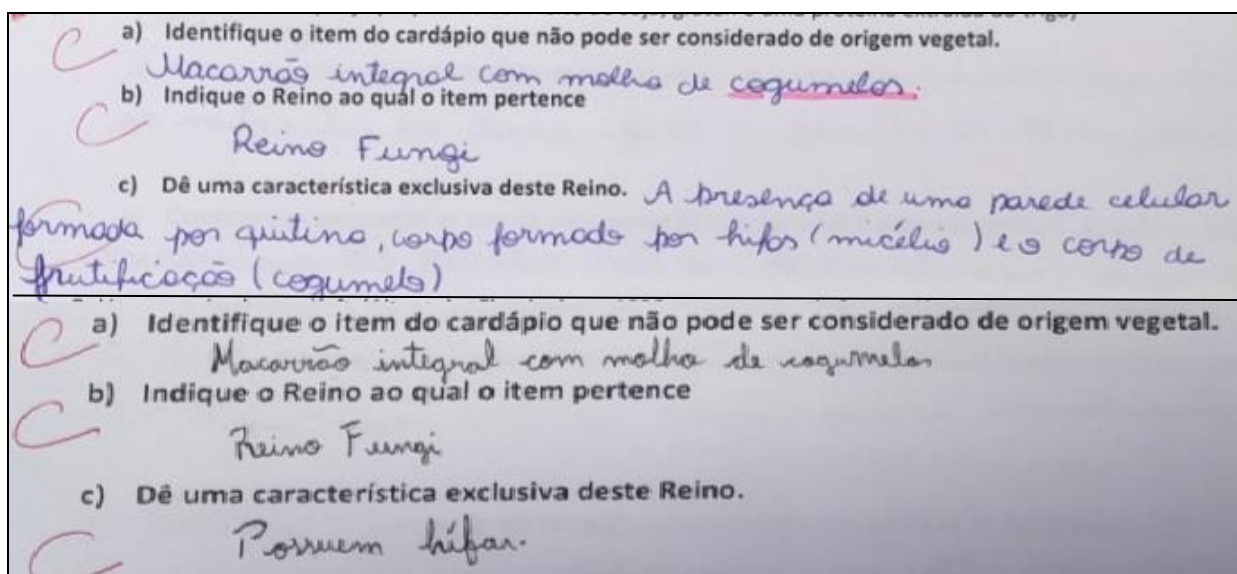 a) Identifique o item do cardápio que não pode ser considerado de origem vegetal.
Macarrão integral com molho de cogumelos.
b) Indique o Reino ao qual o item pertence
Reino Fungi
c) Dê uma característica exclusiva deste Reino. A presença de uma parede celular
formada por quitina, corpo formado por hifas (micélio) e o corpo de
frutificação (cogumelo)
a) Identifique o item do cardápio que não pode ser considerado de origem vegetal.
Macarrão integral com molho de cogumelos
b) Indique o Reino ao qual o item pertence
Reino Fungi
c) Dê uma característica exclusiva deste Reino.
Possuem hífas.